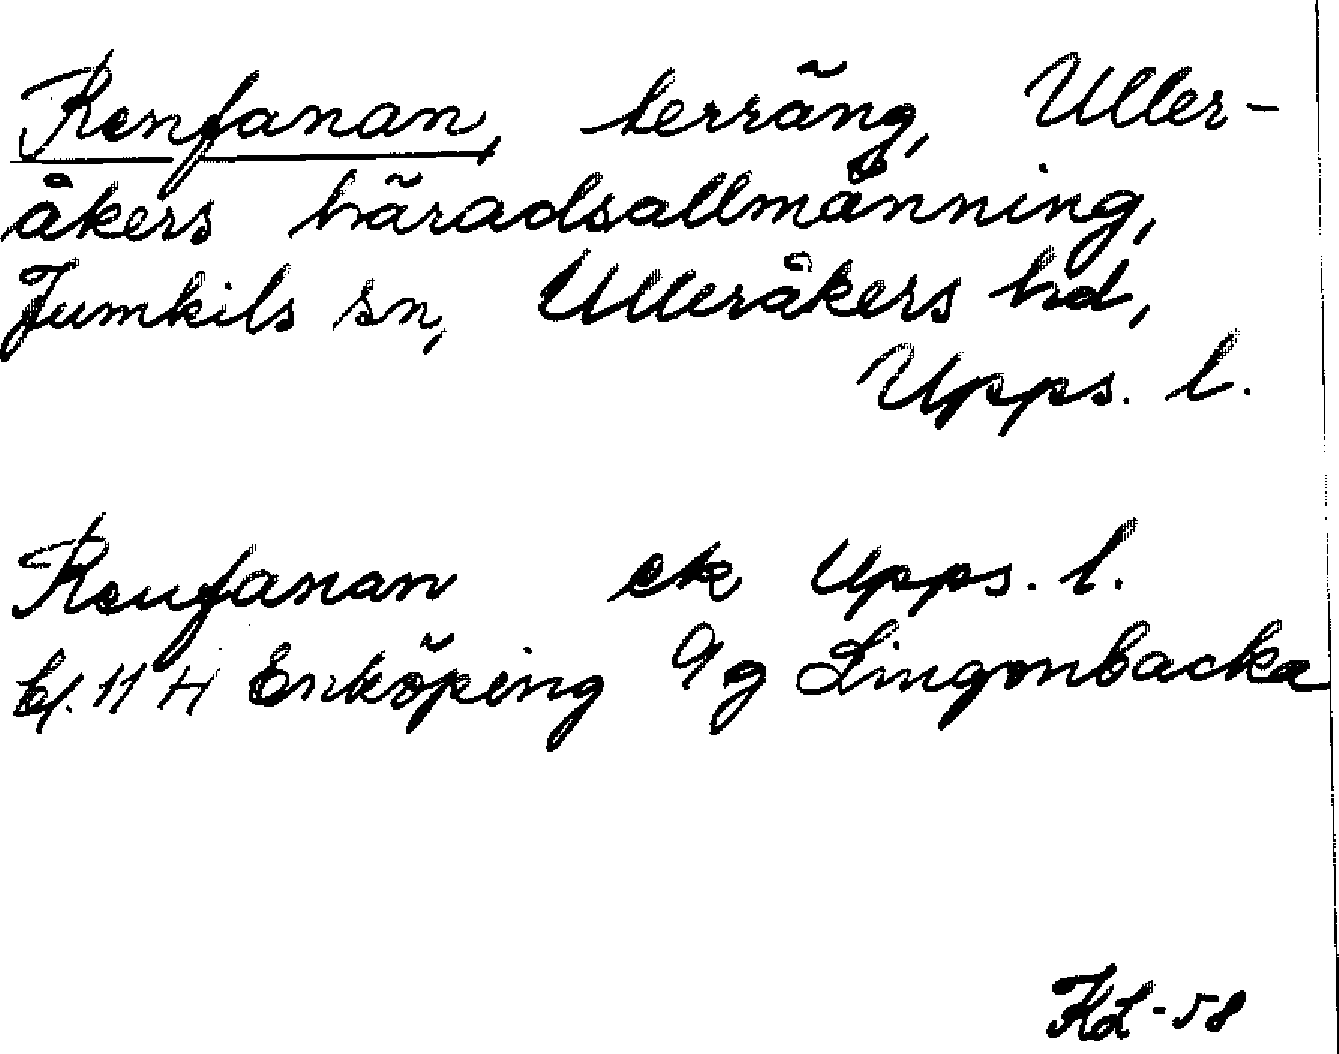 Renfanan, terräng, Uller-
åkers häradsallmänning,
Jumkils sn, Ulleråkers hd,
Upps. l.
Renfanan ek Upps. l.
bl. 11 H Enköping 9g Lingonbacka
KL-58